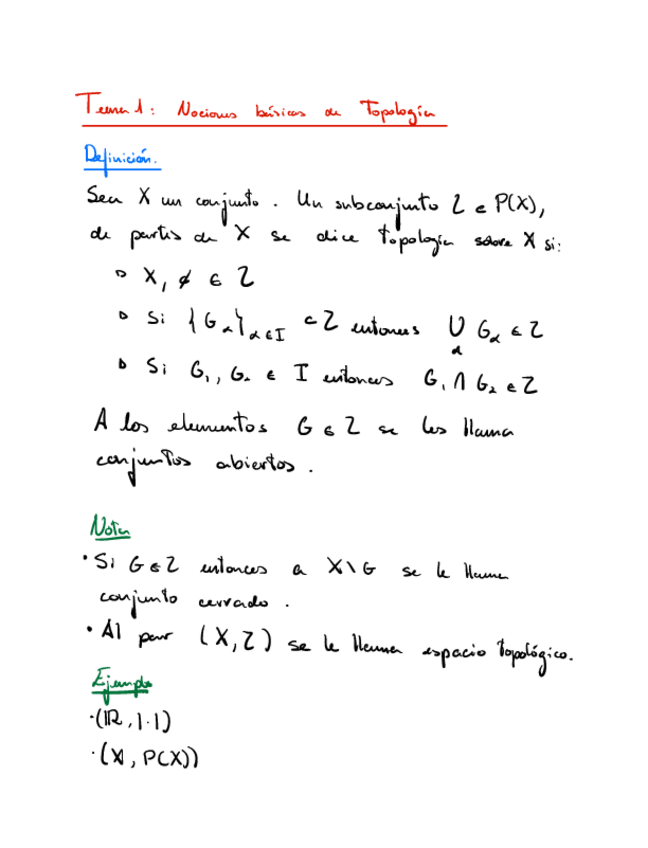 Tema 1: Nociones básicas de Topología
Definición.
Sea X un conjunto. Un subconjunto Z ∈ P(X),
de partes de X se dice topología sobre X si:
▹ X, ∅ ∈ Z
▹ Si {G_α}_{α∈I} ⊂ Z entonces ⋃_α G_α ∈ Z
▹ Si G₁, G₂ ∈ I entonces G₁ ∩ G₂ ∈ Z
A los elementos G ∈ Z se les llama
conjuntos abiertos.
Nota
• Si G ∈ Z entonces a X\G se le llama
conjunto cerrado.
• Al par (X, Z) se le llama espacio topológico.
Ejemplo
• (ℝ, |·|)
• (X, P(X))